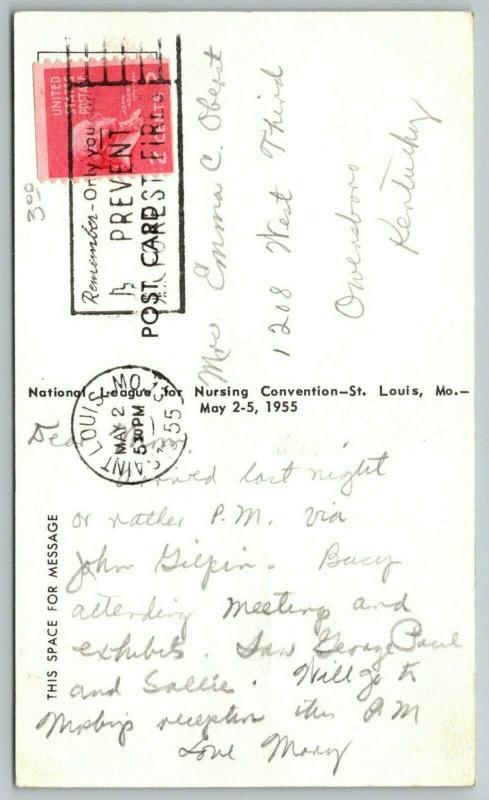 UNITED
STATES
POSTAGE
JOHN ADAMS
2 CENTS
3 00
Remember-Only you
PREVENT
FOREST FIRES
POST CARD
Mrs Emma C. Oberst
1208 West Third
Owensboro
Kentucky
National League for Nursing Convention—St. Louis, Mo.—
May 2-5, 1955
SAINT LOUIS, MO. 15
MAY 2
5 30 PM
1955
THIS SPACE FOR MESSAGE
Dear Mom,
Arrived last night
or rather P.M. via
John Gilpin - Busy
attending meetings and
exhibits. Saw George Paul
and Sallie. Will go to
Mosby's reception this P.M
Love Mary